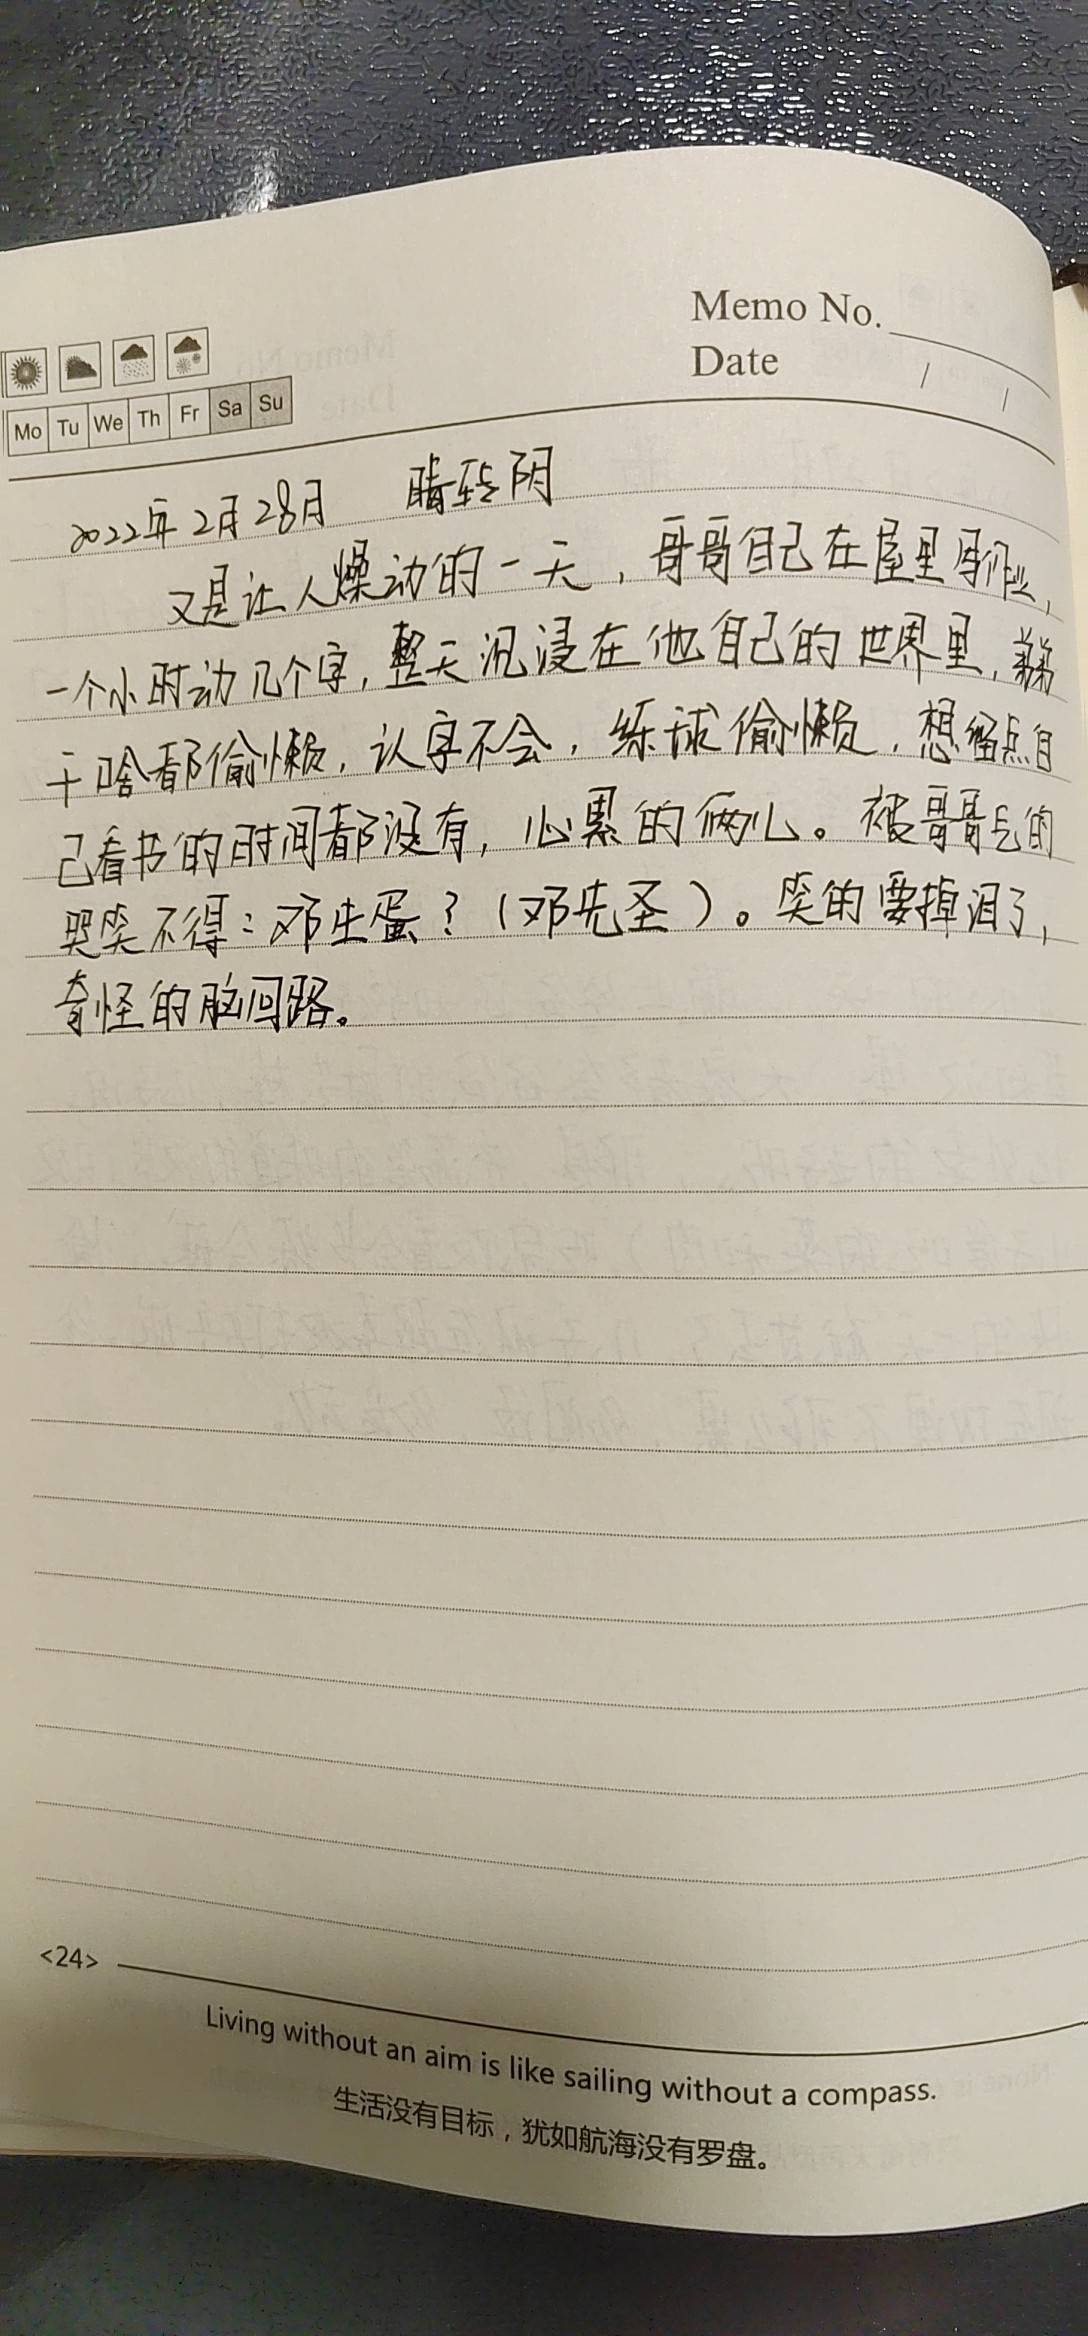 Memo No.
Date / /
Mo Tu We Th Fr Sa Su
2022年2月28月 晴转阴
又是让人燥动的一天，哥哥自己在屋里写作业，
一个小时动几个字，整天沉浸在他自己的世界里，弟弟
干啥都偷懒，认字不会，练球偷懒，想留点自
己看书的时间都没有，心累的俩儿。被哥哥气的
哭笑不得：邓生蛋？（邓先圣）。笑的要掉泪了，
奇怪的脑回路。
<24>
Living without an aim is like sailing without a compass.
生活没有目标，犹如航海没有罗盘。